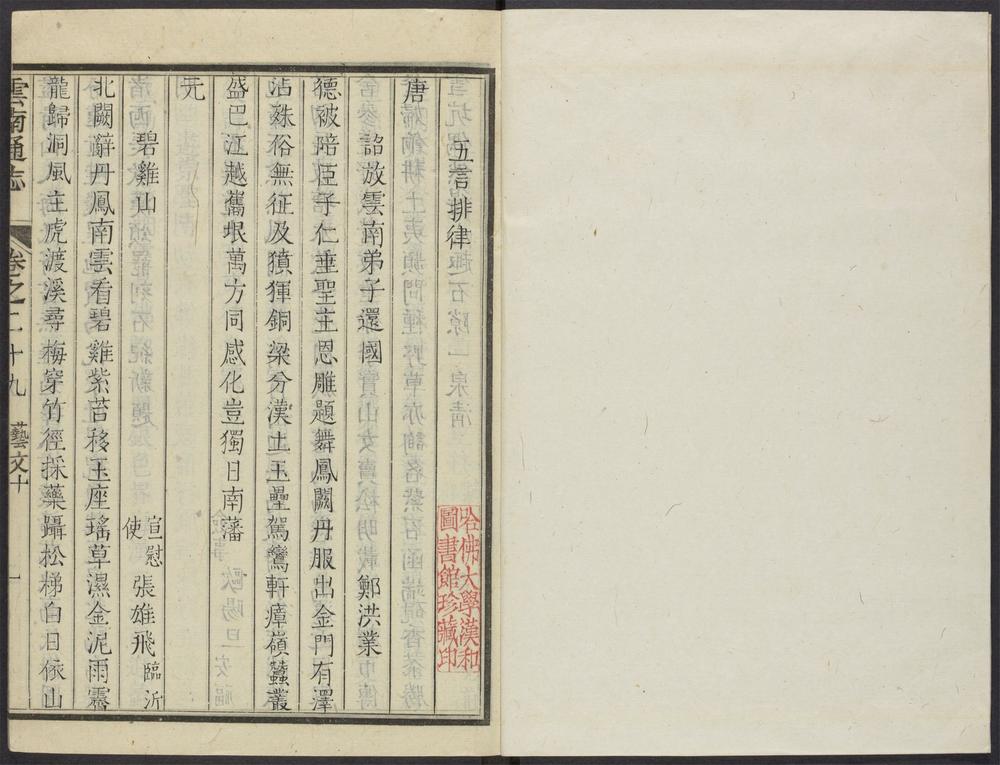 五言排律
唐
詔放雲南弟子還國 鄭洪業
德被陪臣子仁垂聖主恩雕題舞鳳闕丹服出金門有澤
沾殊俗無征及獷獋銅梁分漢土玉壘駕鸞軒瘴嶺蠶叢
盛巴江越巂垠萬方同感化豈獨日南藩
元
碧雞山 宣慰使 張雄飛 臨沂
北闕辭丹鳳南雲看碧雞紫苔移玉座瑤草濕金泥雨霽
龍歸洞風生虎渡溪尋梅穿竹徑採藥躡松梯白日依山
雲南通志 卷之二十九 藝文十 一
哈佛大學漢和
圖書館珍藏印